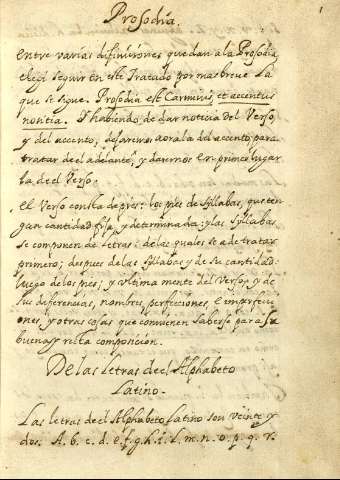 Prosodia.
1
Entre varias difiniciones que dan a la Prosodia
elegi seguir en este Tratado por mas breve la
que se sigue. Prosodia est Carminis, et accentus
notitia. Y habiendo de dar noticia del Verso,
y del accento, dejaremos aora la del accento para
tratar de el adelante, y daremos en primer lugar
la de el Verso.
El Verso consta de pies: los pies de Syllabas, que ten
gan cantidad fija, y determinada: y las Syllabas
se componen de letras: de las quales se a de tratar
primero; despues de las Syllabas y de su cantidad:
luego de los pies; y ultima mente del Verso, y de
sus diferencias, nombres, perfecciones, e imperfeci
ones, y otras cosas que convienen saberse para la
buena y recta composición.
De las letras de el Alphabeto
Latino.
Las letras de el Alphabeto Latino son veinte y
dos. A. b. c. d. e. f. g. h. i. l. m. n. o. p. q. r.